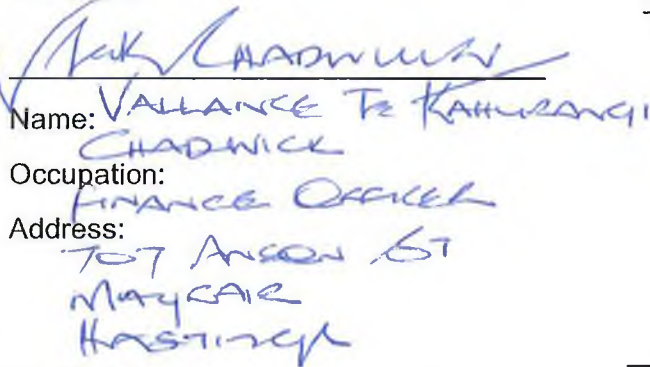 Chadwick
Name: VALLANCE Te KAHURANGI
CHADWICK
Occupation:
FINANCE OFFICER
Address:
707 ANSON ST
MAYFAIR
HASTINGS